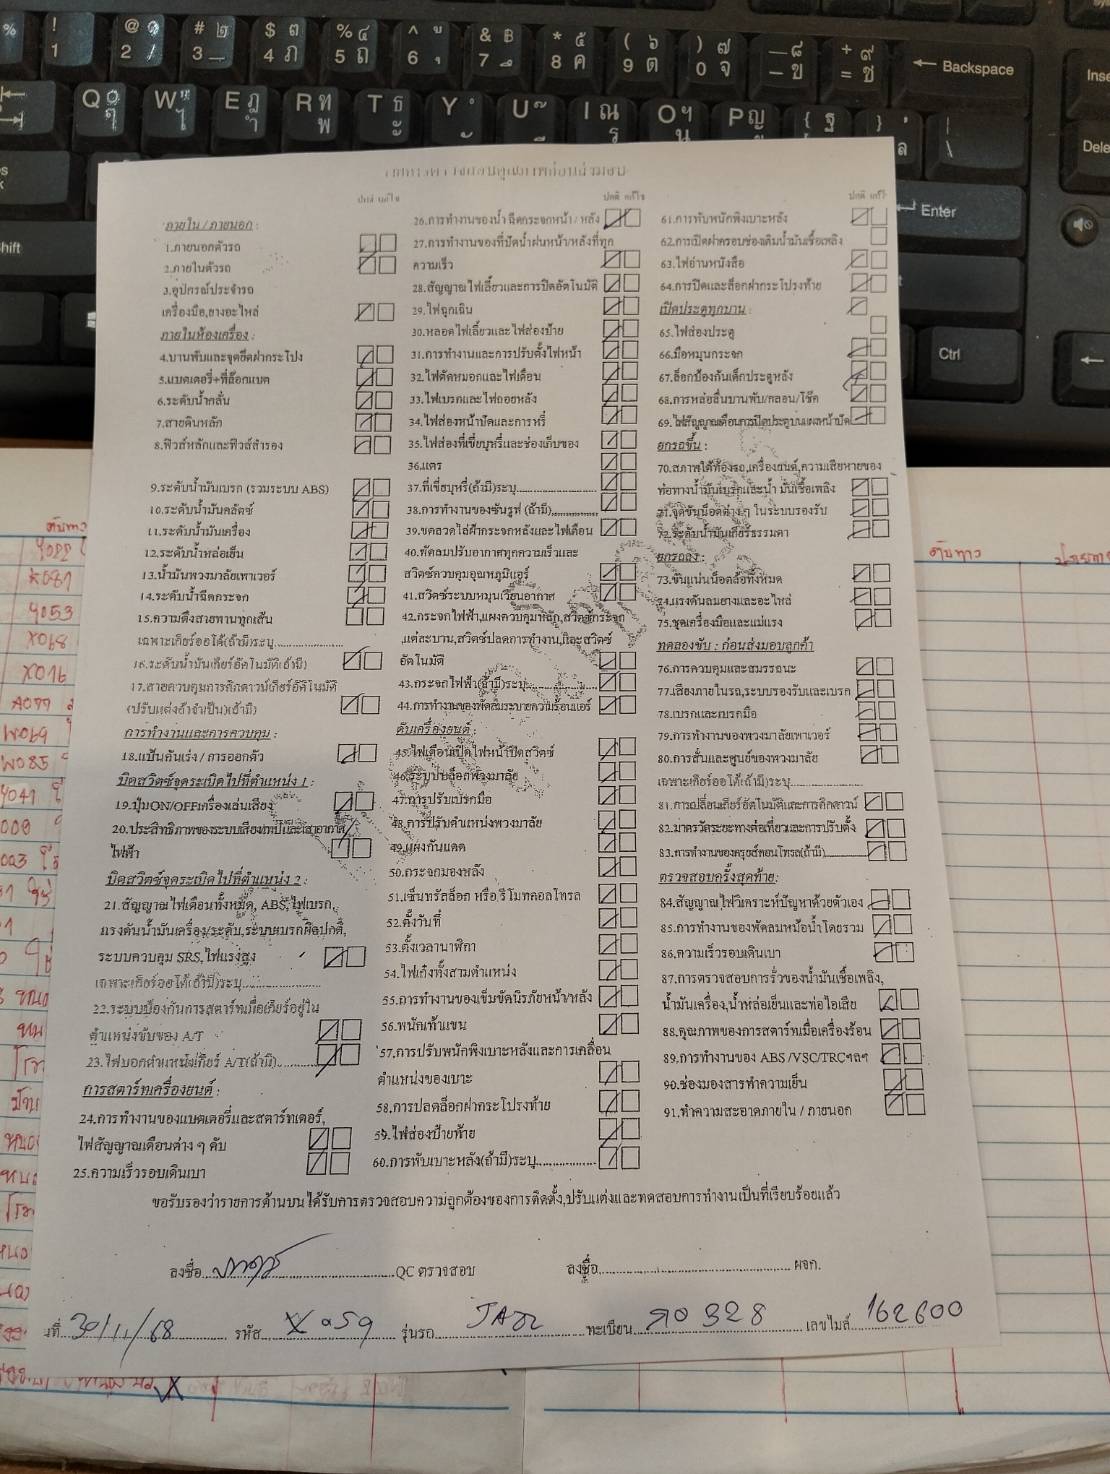 ปกติ แก้ไข
ภายใน / ภายนอก :
1.ภายนอกตัวรถ
2.ภายในตัวรถ
3.อุปกรณ์ประจำรถ
เครื่องมือ,ยางอะไหล่
ภายในห้องเครื่อง :
4.บานพับและจุดยึดฝากระโปรง
5.แบตเตอรี่+ที่ล็อกแบต
6.ระดับน้ำกลั่น
7.สายดินหลัก
8.ฟิวส์หลักและฟิวส์สำรอง
9.ระดับน้ำมันเบรก (รวมระบบ ABS)
10.ระดับน้ำมันคลัตช์
11.ระดับน้ำมันเครื่อง
12.ระดับน้ำหล่อเย็น
13.น้ำมันพวงมาลัยเพาเวอร์
14.ระดับน้ำฉีดกระจก
15.ความตึงสายพานทุกเส้น
เฉพาะเกียร์ออโต้(ถ้ามี)ระบุ
16.ระดับน้ำมันเกียร์อัตโนมัติ(ถ้ามี)
17.สายควบคุมการคิกดาวน์เกียร์อัตโนมัติ
(ปรับแต่งถ้าจำเป็น)(ถ้ามี)
การทำงานและการควบคุม :
18.แป้นคันเร่ง / การออกตัว
บิดสวิตช์จุดระเบิดไปที่ตำแหน่ง 1 :
19.ปุ่มON/OFFเครื่องเล่นเสียง
20.ประสิทธิภาพของระบบเสียงเทปและเสาอากาศ
ไฟฟ้า
บิดสวิตช์จุดระเบิดไปที่ตำแหน่ง 2 :
21.สัญญาณไฟเตือนทั้งหมด, ABS,ไฟเบรก,
แรงดันน้ำมันเครื่อง/ระดับ,ระบบเบรกผิดปกติ,
ระบบควบคุม SRS,ไฟแรงสูง
เฉพาะเกียร์ออโต้(ถ้ามี)ระบุ
22.ระบบป้องกันการสตาร์ทเมื่อเกียร์อยู่ใน
ตำแหน่งขับของ A/T
23.ไฟบอกตำแหน่งเกียร์ A/T(ถ้ามี)
การสตาร์ทเครื่องยนต์ :
24.การทำงานของแบตเตอรี่และสตาร์ทเตอร์,
ไฟสัญญาณเตือนต่าง ๆ ดับ
25.ความเร็วรอบเดินเบา
ปกติ แก้ไข
26.การทำงานของน้ำฉีดกระจกหน้า / หลัง
27.การทำงานของที่ปัดน้ำฝนหน้า/หลังที่ทุก
ความเร็ว
28.สัญญาณไฟเลี้ยวและการปิดอัตโนมัติ
29.ไฟฉุกเฉิน
30.หลอดไฟเลี้ยวและไฟส่องป้าย
31.การทำงานและการปรับตั้งไฟหน้า
32.ไฟตัดหมอกและไฟเตือน
33.ไฟเบรกและไฟถอยหลัง
34.ไฟส่องหน้าปัดและการหรี่
35.ไฟส่องที่เขี่ยบุหรี่และช่องเก็บของ
36.แตร
37.ที่เขี่ยบุหรี่(ถ้ามี)ระบุ
38.การทำงานของซันรูฟ (ถ้ามี)
39.ขดลวดไล่ฝ้ากระจกหลังและไฟเตือน
40.พัดลมปรับอากาศทุกความเร็วและ
สวิตช์ควบคุมอุณหภูมิแอร์
41.สวิตช์ระบบหมุนเวียนอากาศ
42.กระจกไฟฟ้า,แผงควบคุมหลัก,สวิตช์กระจก
แต่ละบาน,สวิตช์ปลดการทำงาน,และสวิตช์
อัตโนมัติ
43.กระจกไฟฟ้า(ถ้ามี)ระบุ
44.การทำงานของพัดลมระบายความร้อนแอร์
ดับเครื่องยนต์ :
45.ไฟเตือนเปิดไฟหน้าปิดสวิตช์
46.ระบบปลดล็อกพวงมาลัย
47.การปรับเบรกมือ
48.การปรับตำแหน่งพวงมาลัย
49.แผงกันแดด
50.กระจกมองหลัง
51.เซ็นทรัลล็อก หรือ,รีโมทคอลโทรล
52.ตั้งวันที่
53.ตั้งเวลานาฬิกา
54.ไฟเก๋งทั้งสามตำแหน่ง
55.การทำงานของเข็มขัดนิรภัยหน้า/หลัง
56.พนักเท้าแขน
57.การปรับพนักพิงเบาะหลังและการเคลื่อน
ตำแหน่งของเบาะ
58.การปลดล็อกฝากระโปรงท้าย
59.ไฟส่องป้ายท้าย
60.การพับเบาะหลัง(ถ้ามี)ระบุ
ปกติ แก้ไข
61.การพับพนักพิงเบาะหลัง
62.การเปิดฝาครอบช่องเติมน้ำมันเชื้อเพลิง
63.ไฟอ่านหนังสือ
64.การปิดและล็อกฝากระโปรงท้าย
เปิดประตูทุกบาน :
65.ไฟส่องประตู
66.มือหมุนกระจก
67.ล็อกป้องกันเด็กประตูหลัง
68.การหล่อลื่นบานพับ/กลอน/โช๊ค
69.ไฟสัญญาณเตือนการเปิดประตูบนแผงหน้าปัด
ยกรถขึ้น :
70.สภาพใต้ท้องรถ,เครื่องยนต์,ความเสียหายของ
ท่อทางน้ำมันเบรกและน้ำ มันเชื้อเพลิง
71.จุดขันน็อตต่างๆ ในระบบรองรับ
72.ระดับน้ำมันเกียร์ธรรมดา
ยกรถลง :
73.ขันแน่นน็อตล้อทั้งหมด
74.แรงดันลมยางและอะไหล่
75.ชุดเครื่องมือและแม่แรง
ทดลองขับ : ก่อนส่งมอบลูกค้า
76.การควบคุมและสมรรถนะ
77.เสียงภายในรถ,ระบบรองรับและเบรก
78.เบรกและเบรกมือ
79.การทำงานของพวงมาลัยเพาเวอร์
80.การสั่นและศูนย์ของพวงมาลัย
เฉพาะเกียร์ออโต้(ถ้ามี)ระบุ
81.การเปลี่ยนเกียร์อัตโนมัติและการคิกดาวน์
82.มาตรวัดระยะทางต่อเที่ยวและการปรับตั้ง
83.การทำงานของครุยส์คอนโทรล(ถ้ามี)
ตรวจสอบครั้งสุดท้าย:
84.สัญญาณไฟวิเคราะห์ปัญหาด้วยตัวเอง
85.การทำงานของพัดลมหม้อน้ำโดยรวม
86.ความเร็วรอบเดินเบา
87.การตรวจสอบการรั่วของน้ำมันเชื้อเพลิง,
น้ำมันเครื่อง,น้ำหล่อเย็นและท่อไอเสีย
88.คุณภาพของการสตาร์ทเมื่อเครื่องร้อน
89.การทำงานของ ABS /VSC/TRCฯลฯ
90.ช่องมองสารทำความเย็น
91.ทำความสะอาดภายใน / ภายนอก
ขอรับรองว่ารายการด้านบนได้รับการตรวจสอบความถูกต้องของการติดตั้ง,ปรับแต่งและทดสอบการทำงานเป็นที่เรียบร้อยแล้ว
ลงชื่อ QC ตรวจสอบ ลงชื่อ ผจก.
30/11/68 รหัส X059 รุ่นรถ ทะเบียน 328 เลขไมล์ 162600